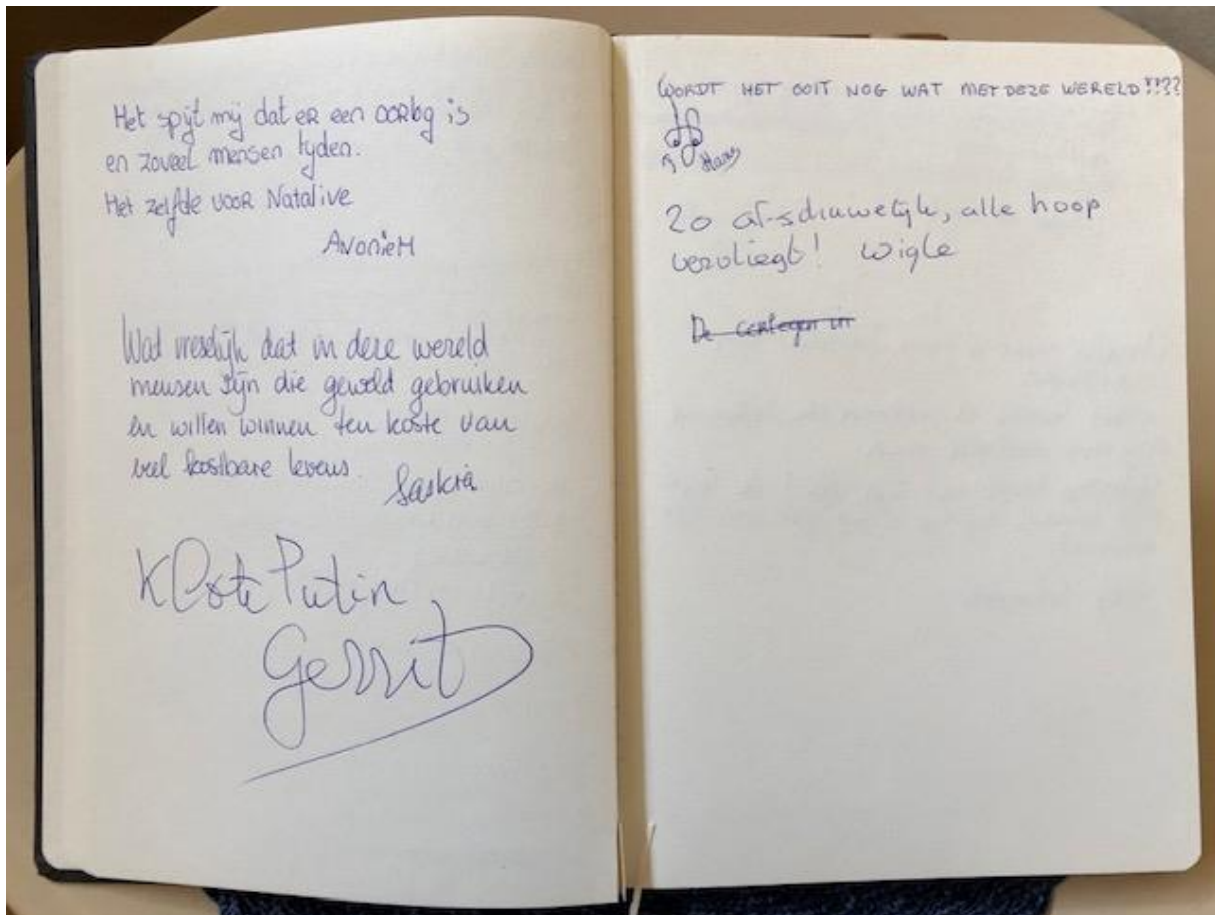 Het spijt mij dat er een oorlog is
en zoveel mensen lyden.
Het zelfde voor Natalive
Anoniem
Wat vreselijk dat in deze wereld
mensen zijn die geweld gebruiken
en willen winnen ten koste van
veel kostbare levens.
Saskia
Klote Putin,
Gerrit
WORDT HET OOIT NOG WAT MET DEZE WERELD!!??
Hans
Zo af-schuwelijk, alle hoop
vervliegt! Wigle
De oorlogen in